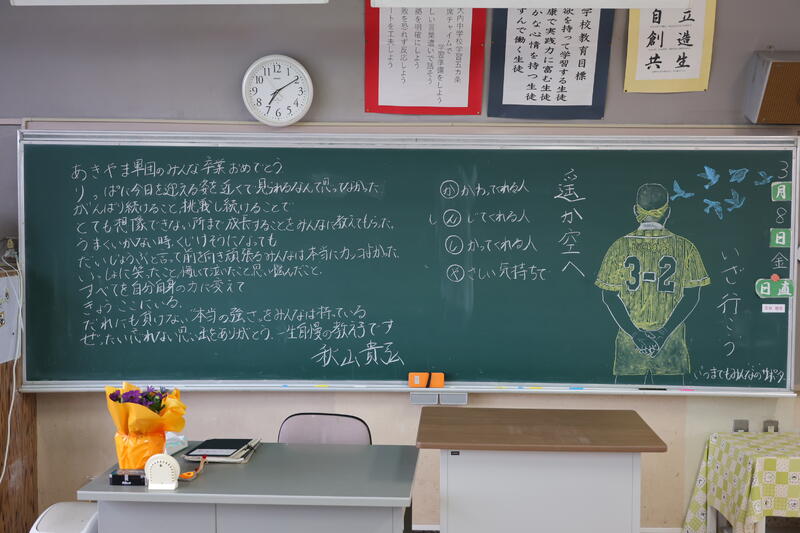 大内中学校学習五カ条
席チャイムで
学習準備をしよう
しい言葉遣いで話そう
拠を明確にしよう
敗を恐れず反応しよう
ートを工夫しよう
学校教育目標
欲を持って学習する生徒
康で実践力に富む生徒
かな心情を持つ生徒
すんで働く生徒
自立
創造
共生
あきやま軍団のみんな卒業おめでとう
りっぱに今日を迎える姿を近くで見られるなんて思ってなかった
がんばり続けること、挑戦し続けることで
とても想像できない所まで成長することをみんなに教えてもらった。
うまくいかない時、くじけそうになっても
だいじょうぶと言って前を向き頑張るみんなは本当にカッコよかった。
いっしょに笑ったこと、悔しくて泣いたこと、思い悩んだこと。
すべてを自分自身の力に変えて
きょう ここにいる。
だれにも負けない"本当の強さ"をみんなは持っている
ぜったい忘れない思い出をありがとう。一生自慢の教え子です
秋山貴弘
か かわってくれる人
し ん じてくれる人
し かってくれる人
や さしい気持ちで
遥か空へ
3-2
いざ行こう
いつまでもみんなのサポータ
3
月
8
日
金
日直